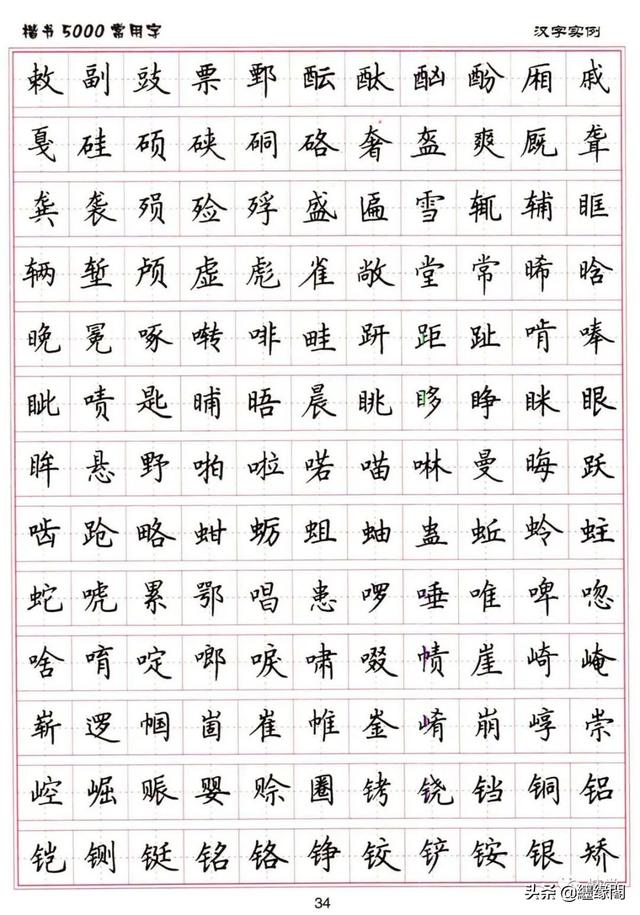 楷书5000常用字 汉字实例
敕副豉票鄄酝酞酗酚厢戚
戛硅硕硖硐硌奢盔爽厩聋
龚袭殒殓殍盛匾雪辄辅眶
辆堑颅虚彪雀敞堂常晞晗
晚冕啄啭啡畦趼距趾啃唪
眦啧匙晡晤晨眺眵睁眯眼
眸悬野啪啦喏喵啉曼晦跃
啮跄略蚶蛎蛆蚰蛊蚯蛉蛀
蛇唬累鄂唱患啰唾唯啤唿
啥唷啶啷唳啸啜帻崖崎崦
崭逻帼崮崔帷崟崤崩崞崇
崆崛赈婴赊圈铐铙铛铜铝
铠铡铤铭铬铮铰铲铵银矫
34
头条@缠缘阁